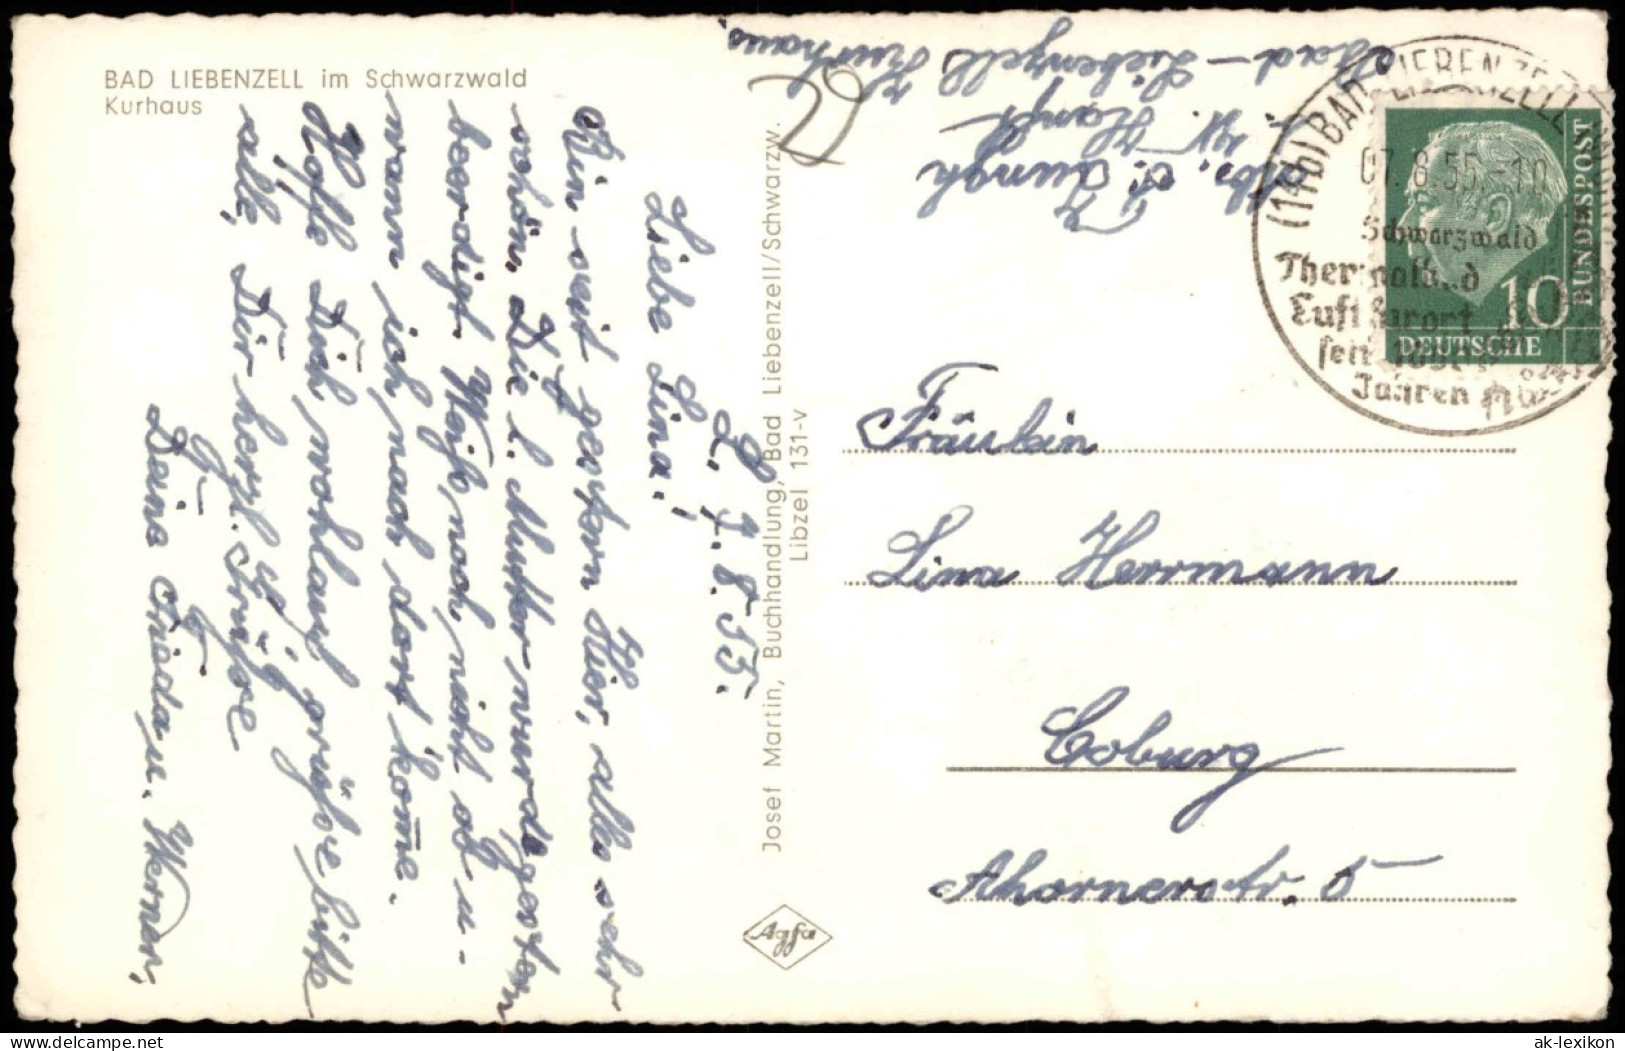 BAD LIEBENZELL im Schwarzwald
Kurhaus
L. 7.8.55.
Liebe Lina!
Bin seit gestern hier, alles sehr
schön. Die l. Mutter wurde gestern
beerdigt. Weiß noch nicht ob u-
wann ich nach dort komme.
Hoffe Dich wohlauf grüße bitte
alle, Dir herzl. Grüße
Deine Frieda u. Werner,
Josef Martin, Buchhandlung, Bad Liebenzell/Schwarzw.
Libzel 131-v
Agfa
Abs.
Bad-Liebenzell Kurhaus
(14b) BAD LIEBENZELL
07.8.55.-10
Schwarzwald
Thermalbad
Luftkurort
seit
Jahren
10
DEUTSCHE
BUNDESPOST
Fräulein
Lina Herrmann
Coburg
Ahornerstr. 5
ak-lexikon